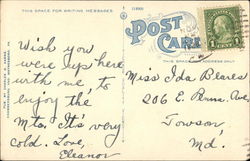 THIS SPACE FOR WRITING MESSAGES
POST CARD
THIS SPACE FOR ADDRESS ONLY
1 CENT 1
Wish you
were up here
with me, to
enjoy the
Mts. It's very
cold. Love,
Eleanor
Miss Ida
206 E. Penna. Ave.
Towson
Md.